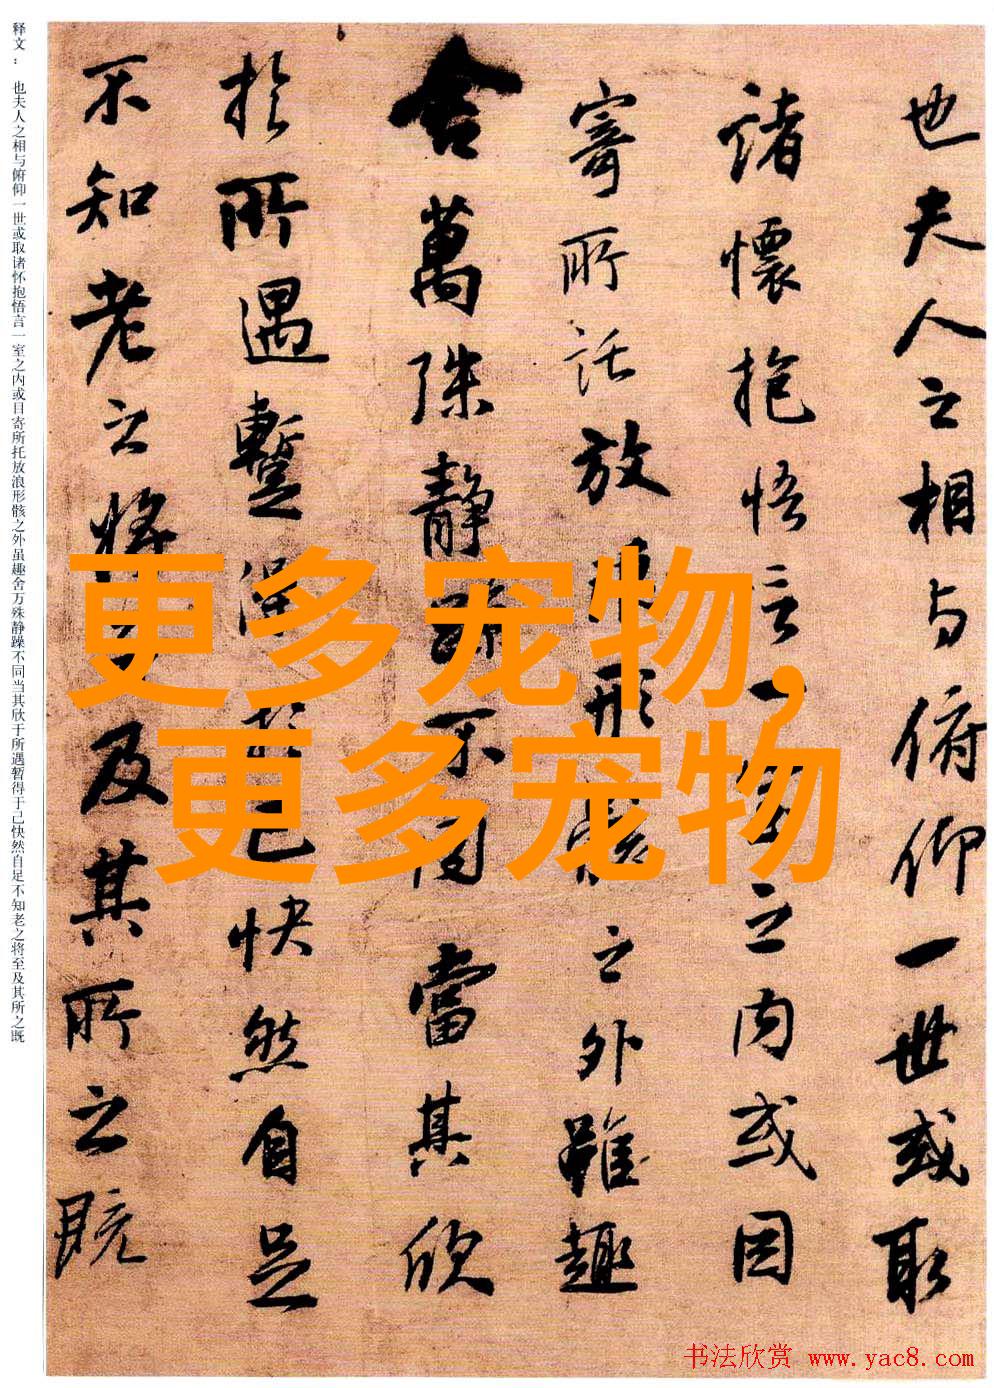 也夫人之相与俯仰一世或取
諸懷抱悟言一之内或因
寄所託放形之外雖趣
舍萬殊静不同當其欣
於所遇暫得於己快然自足
不知老之將及其所之既
释文： 也夫人之相与俯仰一世或取诸怀抱悟言一室之内或目寄所托放浪形骸之外虽趣舍万殊静躁不同当其欣于所遇暂得于己快然自足不知老之将至及其所之既
更多宠物,
更多宠物
书法欣赏 www.yac8.com